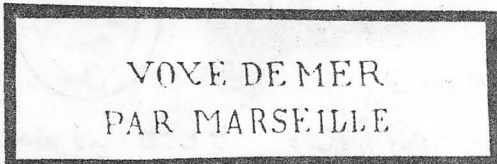 VOYE DE MER
PAR MARSEILLE